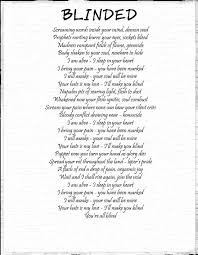 BLINDED
Screaming words inside your mind, demon soul
Prophets waiting burns your eyes, sockets bleed
Madness rampant fields of flame, genocide
Body shaken to your soul, nowhere to hide
I am alive - I sleep in your heart
I bring your pain - you have been marked
I will awake - your soul will be mine
Your hate is my love - I'll make you blind
Napalm pits of searing light, flesh to dust
Whatspend now your flesh ignites, soul combust
Scream more on your open wound, reactions sense
Bloody conflict drawing near - homicide
I am alive - I sleep in your heart
I bring your pain - you have been marked
I will awake - your soul will be mine
Your hate is my love - I'll make you blind
I am alive - I sleep in your heart
I bring your pain - you have been marked
I will awake - your soul will be mine
Your hate is my love - I'll make you blind
Puppet now you turn your hand at gory ebb
Spread your rot throughout the land - leper's pride
A flash of red a drop of pain, orgasmic joy
Wait and I shall rise again, join the void
I am alive - I sleep in your heart
I bring your pain - you have been marked
I will awake - your soul will be mine
Your hate is my love - I'll make you blind
You're all blind